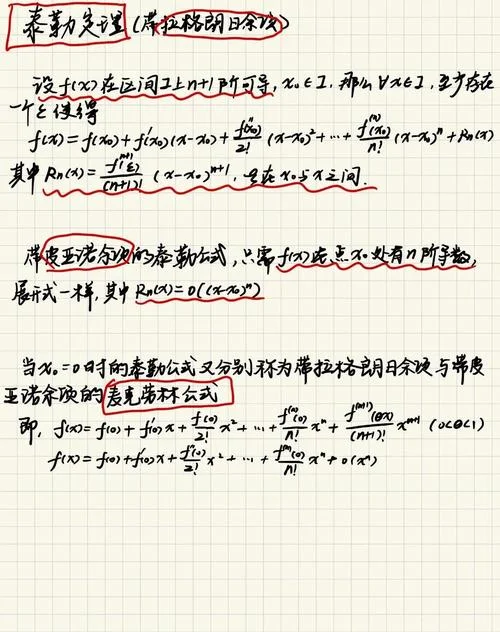 泰勒定理(带拉格朗日余项)
设f(x)在区间I上n+1阶可导, x₀∈I, 那么∀x∈I, 至少存在
一个ξ使得
f(x)=f(x₀)+f'(x₀)(x-x₀)+f''(x₀)/2! (x-x₀)²+…+f⁽ⁿ⁾(x₀)/n! (x-x₀)ⁿ+Rn(x)
其中Rn(x)=f⁽ⁿ⁺¹⁾(ξ)/(n+1)! (x-x₀)ⁿ⁺¹, ξ在x₀与x之间.
带皮亚诺余项的泰勒公式, 只需f(x)在点x₀处有n阶导数,
展开式一样, 其中Rn(x)=o((x-x₀)ⁿ)
当x₀=0时的泰勒公式又分别称为带拉格朗日余项与带皮
亚诺余项的麦克劳林公式
即, f(x)=f(0)+f'(0)x+f''(0)/2! x²+…+f⁽ⁿ⁾(0)/n! xⁿ+f⁽ⁿ⁺¹⁾(θx)/(n+1)! xⁿ⁺¹ (0<θ<1)
f(x)=f(0)+f'(0)x+f''(0)/2! x²+…+f⁽ⁿ⁾(0)/n! xⁿ+o(xⁿ)